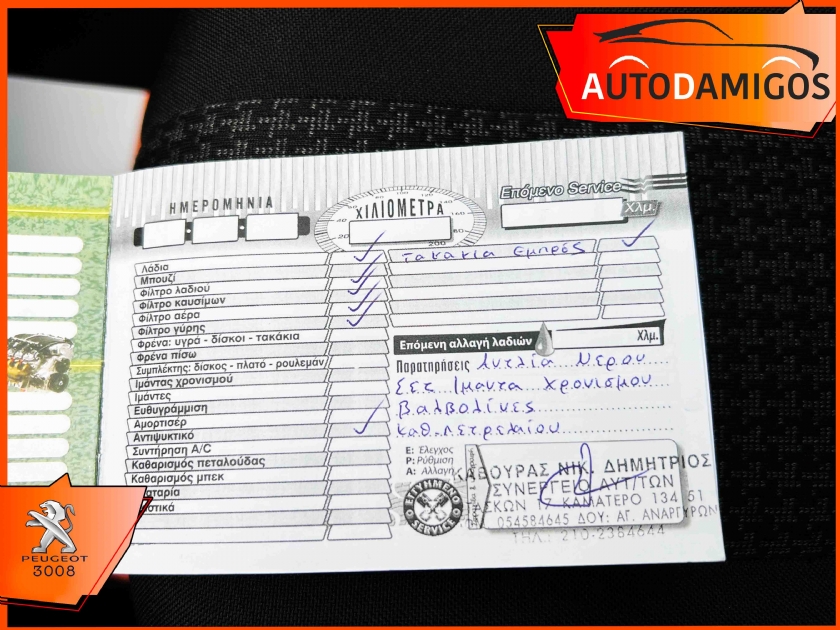 AUTODAMIGOS
ΗΜΕΡΟΜΗΝΙΑ
ΧΙΛΙΟΜΕΤΡΑ
Επόμενο Service
Χλμ.
Λάδια
Μπουζί
Φίλτρο λαδιού
Φίλτρο καυσίμων
Φίλτρο αέρα
Φίλτρο γύρης
Φρένα: υγρά - δίσκοι - τακάκια
Φρένα πίσω
Συμπλέκτης: δίσκος - πλατό - ρουλεμάν
Ιμάντας χρονισμού
Ιμάντες
Ευθυγράμμιση
Αμορτισέρ
Αντιψυκτικό
Συντήρηση A/C
Καθαρισμός πεταλούδας
Καθαρισμός μπεκ
τακακια εμπρός
Επόμενη αλλαγή λαδιών
Χλμ.
Παρατηρήσεις Αντλία Νερου
Σετ Ιμαντα χρονισμου
Βαλβολίνες
καθ. πετρελαίου
Ε: Έλεγχος
Ρ: Ρύθμιση
Α: Αλλαγή
ΕΓΓΥΗΜΕΝΟ
SERVICE
ΚΑΒΟΥΡΑΣ ΝΙΚ. ΔΗΜΗΤΡΙΟΣ
ΣΥΝΕΡΓΕΙΟ ΑΥΤ/ΤΩΝ
17 ΚΑΜΑΤΕΡΟ 134 51
054584645 ΔΟΥ: ΑΓ. ΑΝΑΡΓΥΡΩΝ
ΤΗΛ.: 210-2384644
PEUGEOT
3008